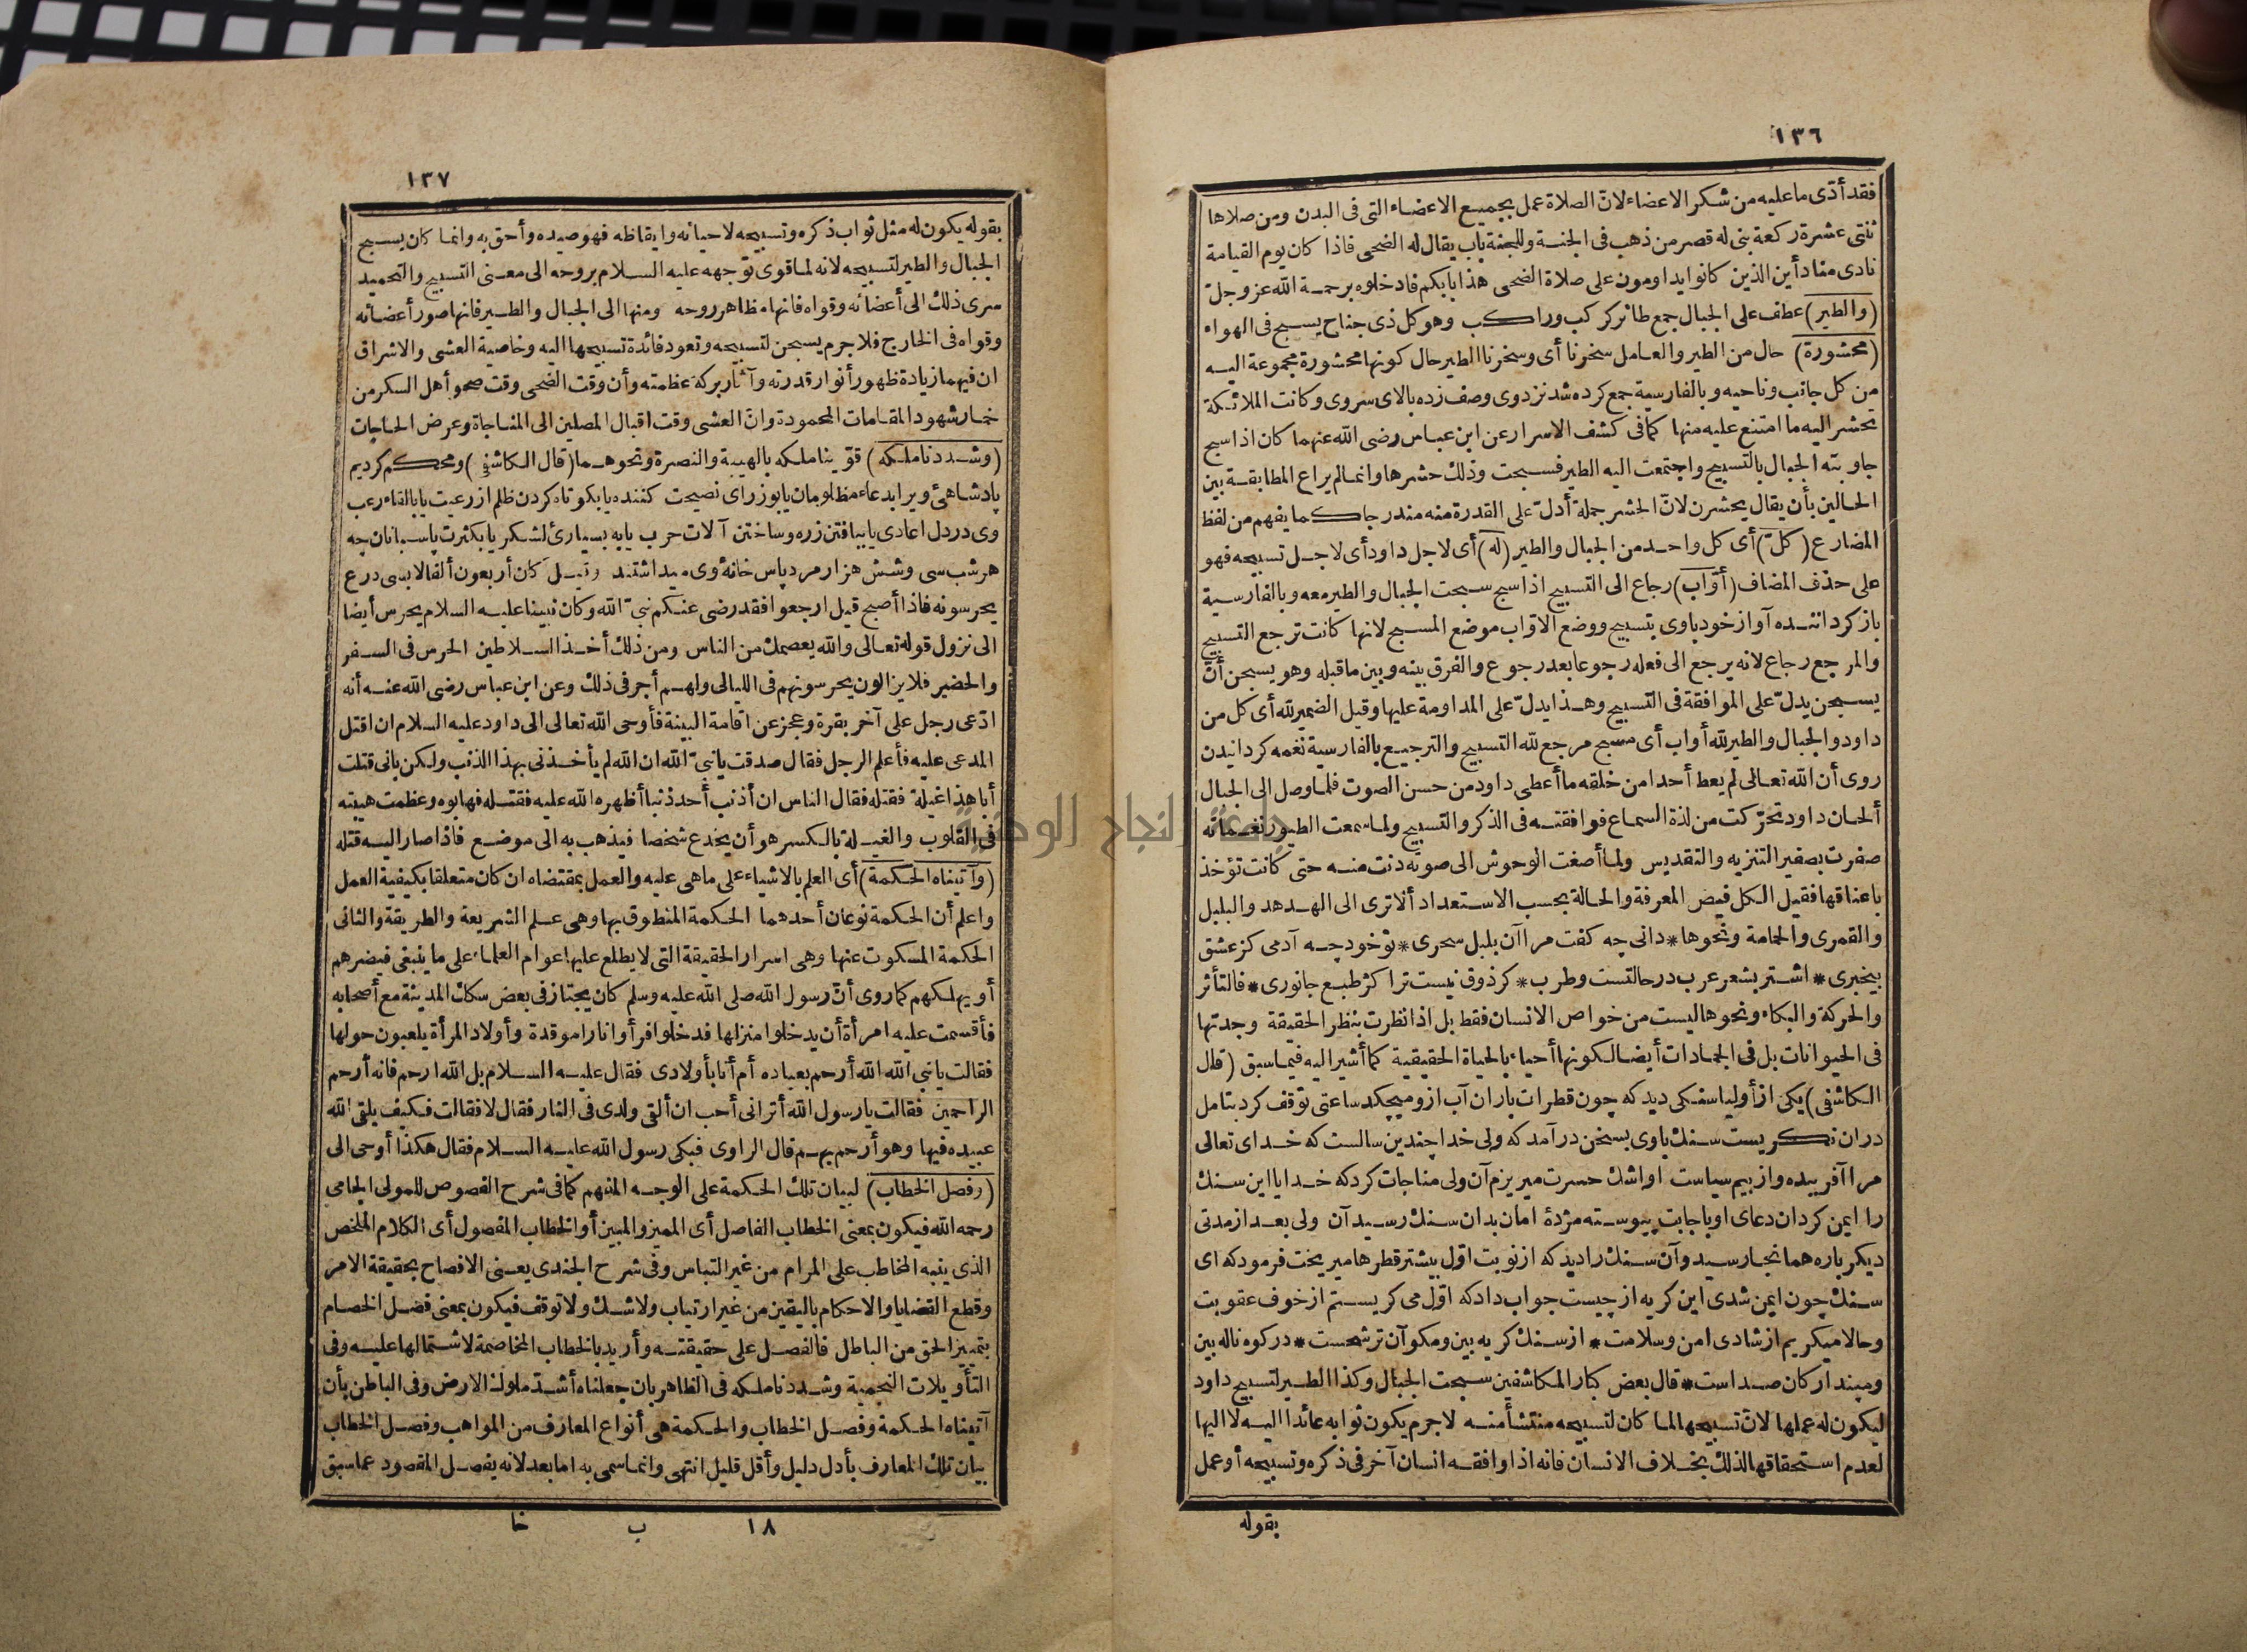 ١٣٦
فقد أدّى ما عليه من شكر الاعضاء لانّ الصلاة عمل بجميع الاعضاء التى فى البدن ومن صلاها
ثنتى عشرة ركعة بنى له قصر من ذهب فى الجنة وللجنة باب يقال له الضحى فاذا كان يوم القيامة
نادى مناد أين الذين كانوا يداومون على صلاة الضحى هذا بابكم فادخلوه برحمة الله عز وجلّ
(والطير) عطف على الجبال جمع طائر كركب وراكب وهو كل ذى جناح يسبح فى الهواء
(محشورة) حال من الطير والعامل سخرنا أى وسخرنا الطير حال كونها محشورة مجموعة اليه
من كل جانب وناحيه وبالفارسية جمع كرده شد نزد وى وصف زده بالاى سر وى وكانت الملائكة
تحشر اليه ما امتنع عليه منها كما فى كشف الاسرار عن ابن عباس رضى الله عنهما كان اذا سبح
جاوبته الجبال بالتسبيح واجتمعت اليه الطير فسبحت وذلك حشرها وانما لم يراع المطابقة بين
الحالين بأن يقال يحشرن لانّ الحشر جملة أدلّ على القدرة منه مندرجا كما يفهم من لفظ
المضارع (كلّ) أى كل واحد من الجبال والطير (له) أى لاجل داود أى لاجل تسبيحه فهو
على حذف المضاف (أوّاب) رجاع الى التسبيح اذا سبح سبحت الجبال والطير معه وبالفارسية
باز كرداننده آواز خود باوى بتسبيح ووضع الاوّاب موضع المسبح لانها كانت ترجع التسبيح
والمرجع رجاع لانه يرجع الى فعله رجوعا بعد رجوع والفرق بينه وبين ما قبله وهو يسبحن أنّ
يسبحن يدلّ على الموافقة فى التسبيح وهذا يدلّ على المداومة عليها وقيل الضمير لله أى كل من
داود والجبال والطير لله أواب أى مسبح مرجع لله التسبيح والترجيع بالفارسية نغمه كردانيدن
روى أن الله تعالى لم يعط أحدا من خلقه ما أعطى داود من حسن الصوت فلما وصل الى الجبال
ألحان داود تحرّكت من لذة السماع فوافقته فى الذكر والتسبيح ولما سمعت الطيور نغماته
صفرت بصفير التنزيه والتقديس ولما أصغت الوحوش الى صوته دنت منه حتى كانت تؤخذ
باعناقها فقيل الكل فيض المعرفة والحالة بحسب الاستعداد ألا ترى الى الهدهد والبلبل
والقمرى والحمامة ونحوها * دانى چه كفت مرا آن بلبل سحرى * تو خود چه آدمى كز عشق
بيخبرى * اشتر بشعر عرب در حالتست وطرب * كر ذوق نيست ترا كژ طبع جانورى * فالتأثر
والحركة والبكاء ونحوها ليست من خواص الانسان فقط بل اذا نظرت بنظر الحقيقة وجدتها
فى الحيوانات بل فى الجمادات أيضا لكونها أحياء بالحياة الحقيقية كما أشير اليه فيما سبق (قال
الكاشفى) يكى از أوليا سنكى ديد كه چون قطرات باران آب ازو ميچكد ساعتى توقف كرد بتامل
دران نكريست سنك باوى بسخن در آمد كه ولى خدا چندين سالست كه خداى تعالى
مرا آفريده واز بيم سياست او اشك حسرت ميريزم آن ولى مناجات كرد كه خدايا اين سنك
را ايمن كردان دعاى او باجابت پيوسته مژدهٔ امان بدان سنك رسيد آن ولى بعد از مدتى
ديكر باره همانجا رسيد وآن سنك را ديد كه از نوبت اوّل بيشتر قطرها ميريخت فرمود كه اى
سنك چون ايمن شدى اين كريه از چيست جواب داد كه اوّل مى كريستم از خوف عقوبت
وحالا ميكريم از شادى امن وسلامت * از سنك كريه بين ومكو آن ترشحست * در كوه ناله بين
وميندار كان صداست * قال بعض كبار المكاشفين سبحت الجبال وكذا الطير لتسبيح داود
ليكون له عملها لانّ تسبيحها لما كان لتسبيحه منتشأ منه لا جرم يكون ثوابه عائدا اليه لا اليها
لعدم استحقاقها لذلك بخلاف الانسان فانه اذا وافقه انسان آخر فى ذكره وتسبيحه أو عمل
بقوله
١٣٧
بقوله يكون له مثل ثواب ذكره وتسبيحه لاحيائه وايقاظه فهو صيده وأحق به وانما كان يسبح
الجبال والطير لتسبيحه لانه لما قوى توجهه عليه السلام بروحه الى معنى التسبيح والتحميد
سرى ذلك الى أعضائه وقواه فانها مظاهر روحه ومنها الى الجبال والطير فانها صور أعضائه
وقواه فى الخارج فلا جرم يسبحن لتسبيحه وتعود فائدة تسبيحها اليه وخاصية العشى والاشراق
ان فيهما زيادة ظهور أنوار قدرته وآثار بركة عظمته وأن وقت الضحى وقت صحو أهل السكر من
خمار شهود المقامات المحمودة وانّ العشى وقت اقبال المصلين الى المناجاة وعرض الحاجات
(وشددنا ملكه) قوّينا ملكه بالهيبة والنصرة ونحوهما (قال الكاشفى) ومحكم كرديم
پادشاهئ ويرا بدعاء مظلومان يا بوزراى نصيحت كننده يا بكوتاه كردن ظلم از رعيت يا بالقاء رعب
وى در دل اعادى يا ببافتن زره وساختن آلات حرب يا به بسيارئ لشكر يا بكثرت پاسبانان چه
هر شب سى وشش هزار مرد پاس خانهٔ وى ميداشتند وقيل كان أربعون ألفا لابسى درع
يحرسونه فاذا أصبح قيل ارجعوا فقد رضى عنكم نبىّ الله وكان نبينا عليه السلام يحرس أيضا
الى نزول قوله تعالى والله يعصمك من الناس ومن ذلك أخذ السلاطين الحرس فى السفر
والحضر فلا يزالون يحرسونهم فى الليالى ولهم أجر فى ذلك وعن ابن عباس رضى الله عنه أنه
ادّعى رجل على آخر بقرة وعجز عن اقامة البينة فأوحى الله تعالى الى داود عليه السلام ان اقتل
المدعى عليه فأعلم الرجل فقال صدقت يا نبىّ الله ان الله لم يأخذنى بهذا الذنب ولكن بانى قتلت
أبا هذا غيلة فقتله فقال الناس ان أذنب أحد ذنبا أظهره الله عليه فقتله فهابوه وعظمت هيبته
فى القلوب والغيلة بالكسر هو أن يخدع شخصا فيذهب به الى موضع فاذا صار اليه قتله
(وآتيناه الحكمة) أى العلم بالاشياء على ما هى عليه والعمل بمقتضاه ان كان متعلقا بكيفية العمل
واعلم أن الحكمة نوعان أحدهما الحكمة المنطوق بها وهى علم الشريعة والطريقة والثانى
الحكمة المسكوت عنها وهى اسرار الحقيقة التى لا يطلع عليها عوام العلماء على ما ينبغى فيضرهم
أو يهلكهم كما روى أنّ رسول الله صلى الله عليه وسلم كان يجتاز فى بعض سكك المدينة مع أصحابه
فأقسمت عليه امرأة أن يدخلوا منزلها فدخلوا فرأوا نارا موقدة وأولاد المرأة يلعبون حولها
فقالت يا نبي الله الله أرحم بعباده أم أنا بأولادى فقال عليه السلام بل الله ارحم فانه أرحم
الراحمين فقالت يا رسول الله أترانى أحب ان ألقى ولدى فى النار فقال لا فقالت فكيف يلقى الله
عبيده فيها وهو أرحم بهم قال الراوى فبكى رسول الله عليه السلام فقال هكذا أوحى الى
(وفصل الخطاب) لبيان تلك الحكمة على الوجه المفهم كما فى شرح الفصوص للمولى الجامى
رحمه الله فيكون بمعنى الخطاب الفاصل أى المميز والمبين أو الخطاب المفصول أى الكلام الملخص
الذى ينبه المخاطب على المرام من غير التباس وفى شرح الجندى يعنى الافصاح بحقيقة الامر
وقطع القضايا والاحكام باليقين من غير ارتياب ولا شك ولا توقف فيكون بمعنى فصل الخصام
بتمييز الحق من الباطل فالفصل على حقيقته وأريد بالخطاب المخاصمة لاشتمالها عليه وفى
التأويلات النجمية وشددنا ملكه فى الظاهر بان جعلناه أشدّ ملوك الارض وفى الباطن بأن
آتيناه الحكمة وفصل الخطاب والحكمة هى أنواع المعارف من المواهب وفصل الخطاب
بيان تلك المعارف بأدل دليل وأقل قليل انتهى وانما سمى به اما بعد لانه يفصل المقصود عما سبق
١٨ ب خا
جامعة النجاح الوطنية